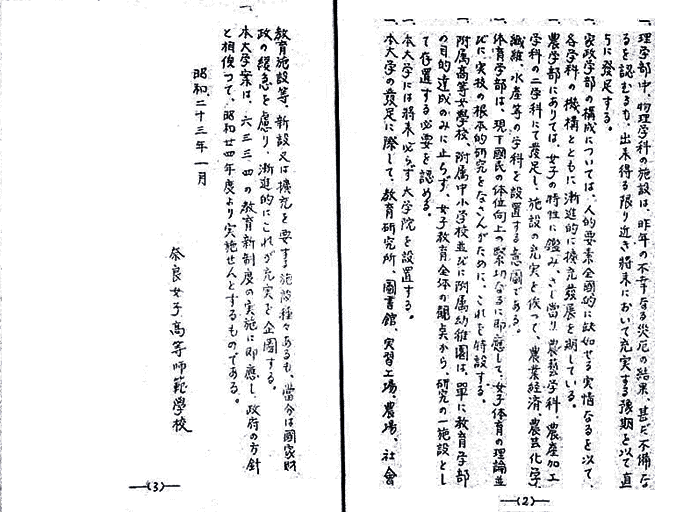 一、理学部中、物理学科の施設は、昨年の不幸なる災厄の結果、甚だ不備な
るを認むるも、出来得る限り近き将来において充実する預期を以て直
ちに発足する。
一、家政学部の構成については、人的要素全國的に缺如せる実情なるを以て、
各学科の機構とともに漸進的に擴充發展を期している。
一、農学部にありては、女子の特性に鑑み、さし當り農藝学科、農産加工
学科の二学科にて發足し、施設の充実を俟つて、農業経済、農芸化学、
繊維、水産等の学科を設置する意圖である。
一、体育学部は、現下國民の体位向上の緊切なるに即應して、女子体育の理論並
びに実技の根本的研究をなさんがために、これを特設する。
一、附属高等女學校、附属中小学校並びに附属幼稚園は、單に教育学部
の目的達成のみに止らず、女子教育全体の観点から、研究の一施設とし
て存置する必要を認める。
一、本大学には将来必らず大学院を設置する。
一、本大学の發足に際して、教育研究所、圖書館、実習工場、農場、社會
—(2)—
教育施設等、新設又は擴充を要する施設種々あるも、當分は國家財
政の緩急を慮り、漸進的にこれが充実を企圖する。
一、本大学案は、六三三四の教育新制度の実施に即應し、政府の方針
と相俟つて、昭和廿四年度より実施せんとするものである。
昭和二十三年一月
奈良女子高等師範學校
—(3)—